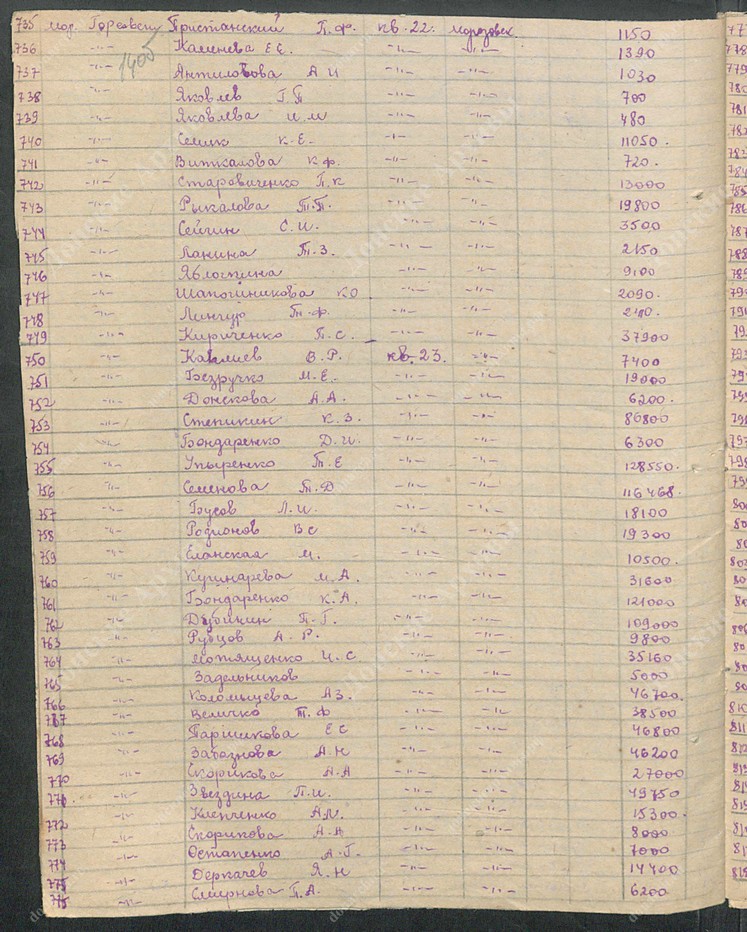 735 мор. Горсовету Пристанский П.Ф. кв. 22. морозовск. 1150
736 -"- Каменева Е Е. -"- -"- 1390
1405
737 -"- Антиловова А И -"- -"- 1030
738 -"- Яковлев Г П -"- -"- 700
739 -"- Яковлева И.М -"- -"- 480
740 -"- К.Е. -"- -"- 11050.
741 -"- Виткалова К Ф. -"- -"- 720.
742 -"- Старовиченко П.К -"- -"- 13000
743 -"- Рыкалова Т.П. -"- -"- 19800
744 -"- Сейчин С.И. -"- -"- 3500
745 -"- Ланина Т.З. -"- -"- 2150
746 -"- -"- -"- 9100
747 -"- Шапошникова К О -"- -"- 2090.
748 -"- Лингур Т.Ф. -"- -"- 2110.
749 -"- Кириченко П.С. -"- -"- 37900
750 -"- В.Р. кв. 23. -"- 7400
751 -"- Безручко М.Е. -"- -"- 19000
752 -"- Донскова А.А. -"- -"- 6200.
753 -"- Степикин К.З. -"- -"- 86800
754 -"- Бондаренко Д.И. -"- -"- 6300
755 -"- Упыренко Т.Е -"- -"- 128550.
756 -"- Семенова Т.Д -"- -"- 116468.
757 -"- Бусов Л.И. -"- -"- 18100
758 -"- Родионов В С -"- -"- 19300
759 -"- Еланская М. -"- -"- 10500.
760 -"- Кушнарева М.А. -"- -"- 31600
761 -"- Бондаренко К.А. -"- -"- 121000
762 -"- Дубинин П.Г. -"- -"- 109000
763 -"- Рубцов А.Р. -"- -"- 9800
764 -"- Мотященко И.С -"- -"- 35160
765 -"- Задельников -"- -"- 5000
766 -"- Коломыцева А З. -"- -"- 46700.
767 -"- Величко Т.Ф -"- -"- 38500
768 -"- Паршикова Е С -"- -"- 46800
769 -"- Забазнова А.Н -"- -"- 46200
770 -"- Скорикова А.А -"- -"- 27000
771. -"- Звездина П.И. -"- -"- 49750
772 -"- Клепченко А М. -"- -"- 15300.
773 -"- Скорикова А.А -"- -"- 8000
774 -"- Остапенко А.Г. -"- -"- 7000
775 -"- Деркачев Я.Н -"- -"- 14400
776 -"- Смирнова П.А. -"- -"- 6200